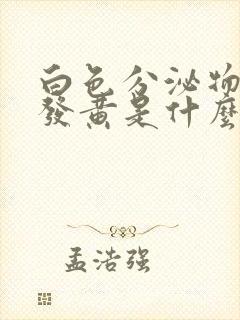 白色分泌物
發黃是什麼
孟浩强